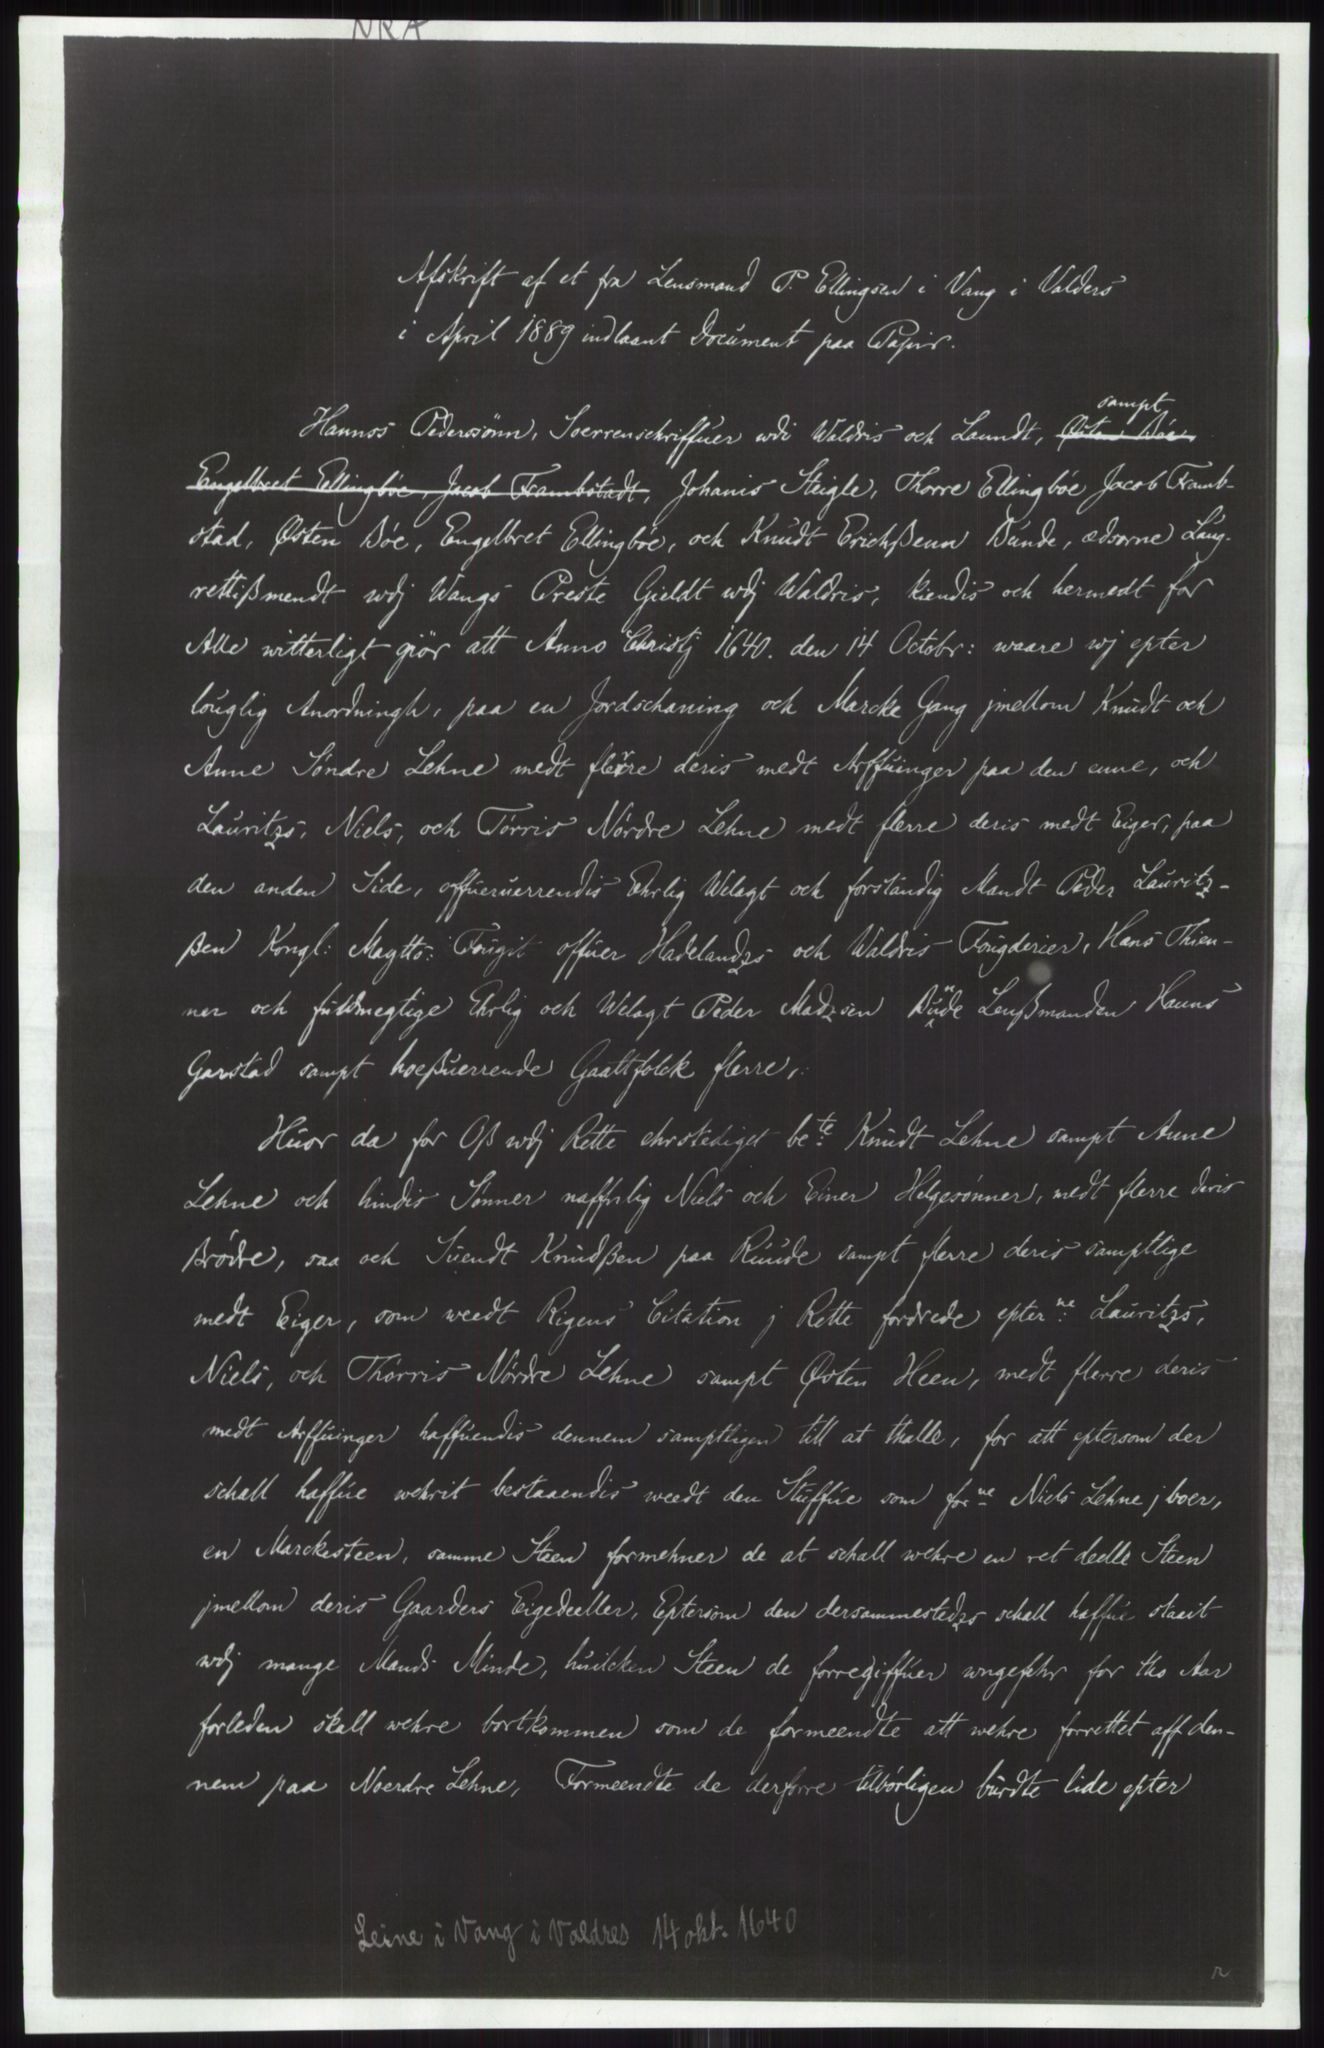 NRA
Afskrift af et fra Lensmand P. Ellingsen i Vang i Valders
i April 1889 indlaant Document paa Papir.
sampt
Hannos Pederssönn, Soerrenschriffuer wdi Waldris och Laundt, Østen Böe
Engelbret Ellingböe, Jacob Frambstadt, Johanis Steigle, Thorre Ellingböe Jacob Framb-
stad, Østen Böe, Engelbret Ellingböe, och Knudt Erichßenn Bunde, edsorne Laug-
rettißmendt wdj Wangs Preste Gieldt wdj Waldris, kiendis och hermedt for
Alle witterligt giör att Anno Christj 1640. den 14 Octobr: waare wj epter
louglig Anordningh, paa en Jordschaning och Marcke Gang jmellom Knudt och
Anne Söndre Lehne medt flerre deris medt Arffuinger paa den enne, och
Lauritzs, Niels, och Törris Nördre Lehne medt flerre deris medt Eiger, paa
den anden Side, offueruerrendis Ehrlig Welagt och forstandig Mandt Peder Lauritz-
ßen Kongl: Magtts: Fougit offuer Hadelandzs och Waldris Fougderier, Hans Thien-
ner och fuldmegtige Ehrlig och Welagt Peder Madzsen Bunde Lenßmanden Hanns
Garstad sampt hoeßuerrende Gaattfolck flerre,
Huor da for Oß wdj Rette ehrstediget be.te Knudt Lehne sampt Anne
Lehne och hindis Sonner naffnlig Niels och Einer Helgesönner, medt flerre deris
Brödre, saa och Suendt Knudßen paa Ruude sampt flerre deris samptlige
medt Eiger, som weedt Rigens Citation j Rette fordrede epter.ne Lauritzs,
Niels, och Thörris Nördre Lehne sampt Østen Heen, medt flerre deris
medt Arffuinger haffuendis dennem samptligen till at thalle, for att eptersom der
schall haffue wehrit bestaaendis weedt den Stuffue som for.ne Niels Lehne j boer,
en Marckesteen, samme Steen formehner de at schall wehre en ret deelle Steen
jmellom deris Gaarders Eigedeeller, Eptersom den dersammestedzs schall haffue staait
wdj mange Mands Minde, huilcken Steen de forregiffuer wngefehr for tho Aar
forleden skall wehre bortkommen som de formeendte att wehre forrettet aff den-
nem paa Noerdre Lehne, Formeendte de derforre tilbörligen burdte lide epter
Leine i Vang i Valdres 14 okt. 1640